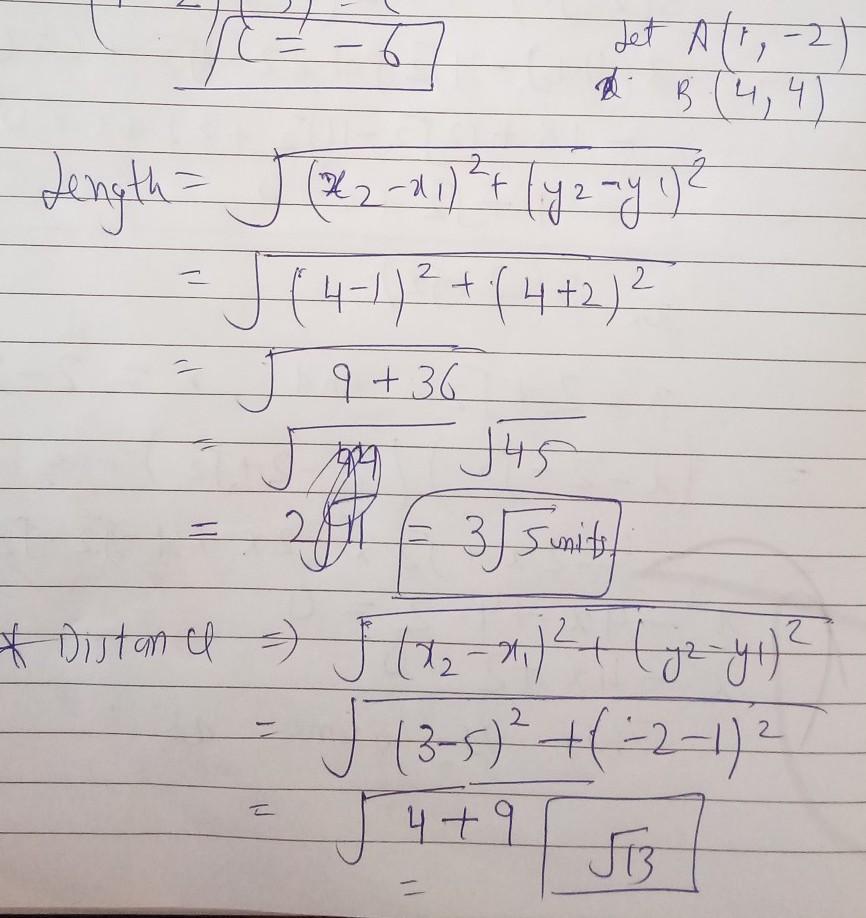 C = - 6
Let A(1, -2)
B (4, 4)
Length = √(x₂ - x₁)² + (y₂ - y₁)²
= √(4-1)² + (4+2)²
= √9 + 36
= √44 √45
= 2√11 = 3√5 units
* Distance ⇒ √(x₂ - x₁)² + (y₂ - y₁)²
= √(3-5)² + (-2-1)²
= √4 + 9
= √13